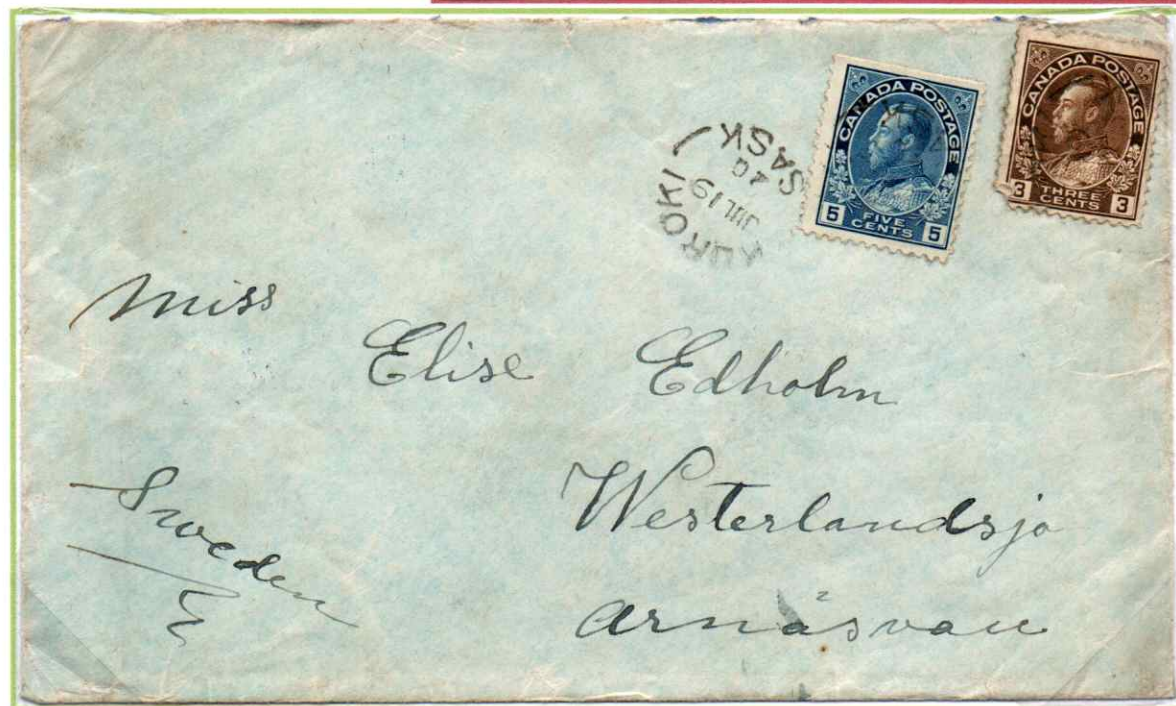 CANADA POSTAGE
5 FIVE CENTS 5
CANADA POSTAGE
3 THREE CENTS 3
KUROKI
JUL 19
20
SASK
Miss
Elise Edholm
Westerlandsjo
Arnäsvall
Sweden